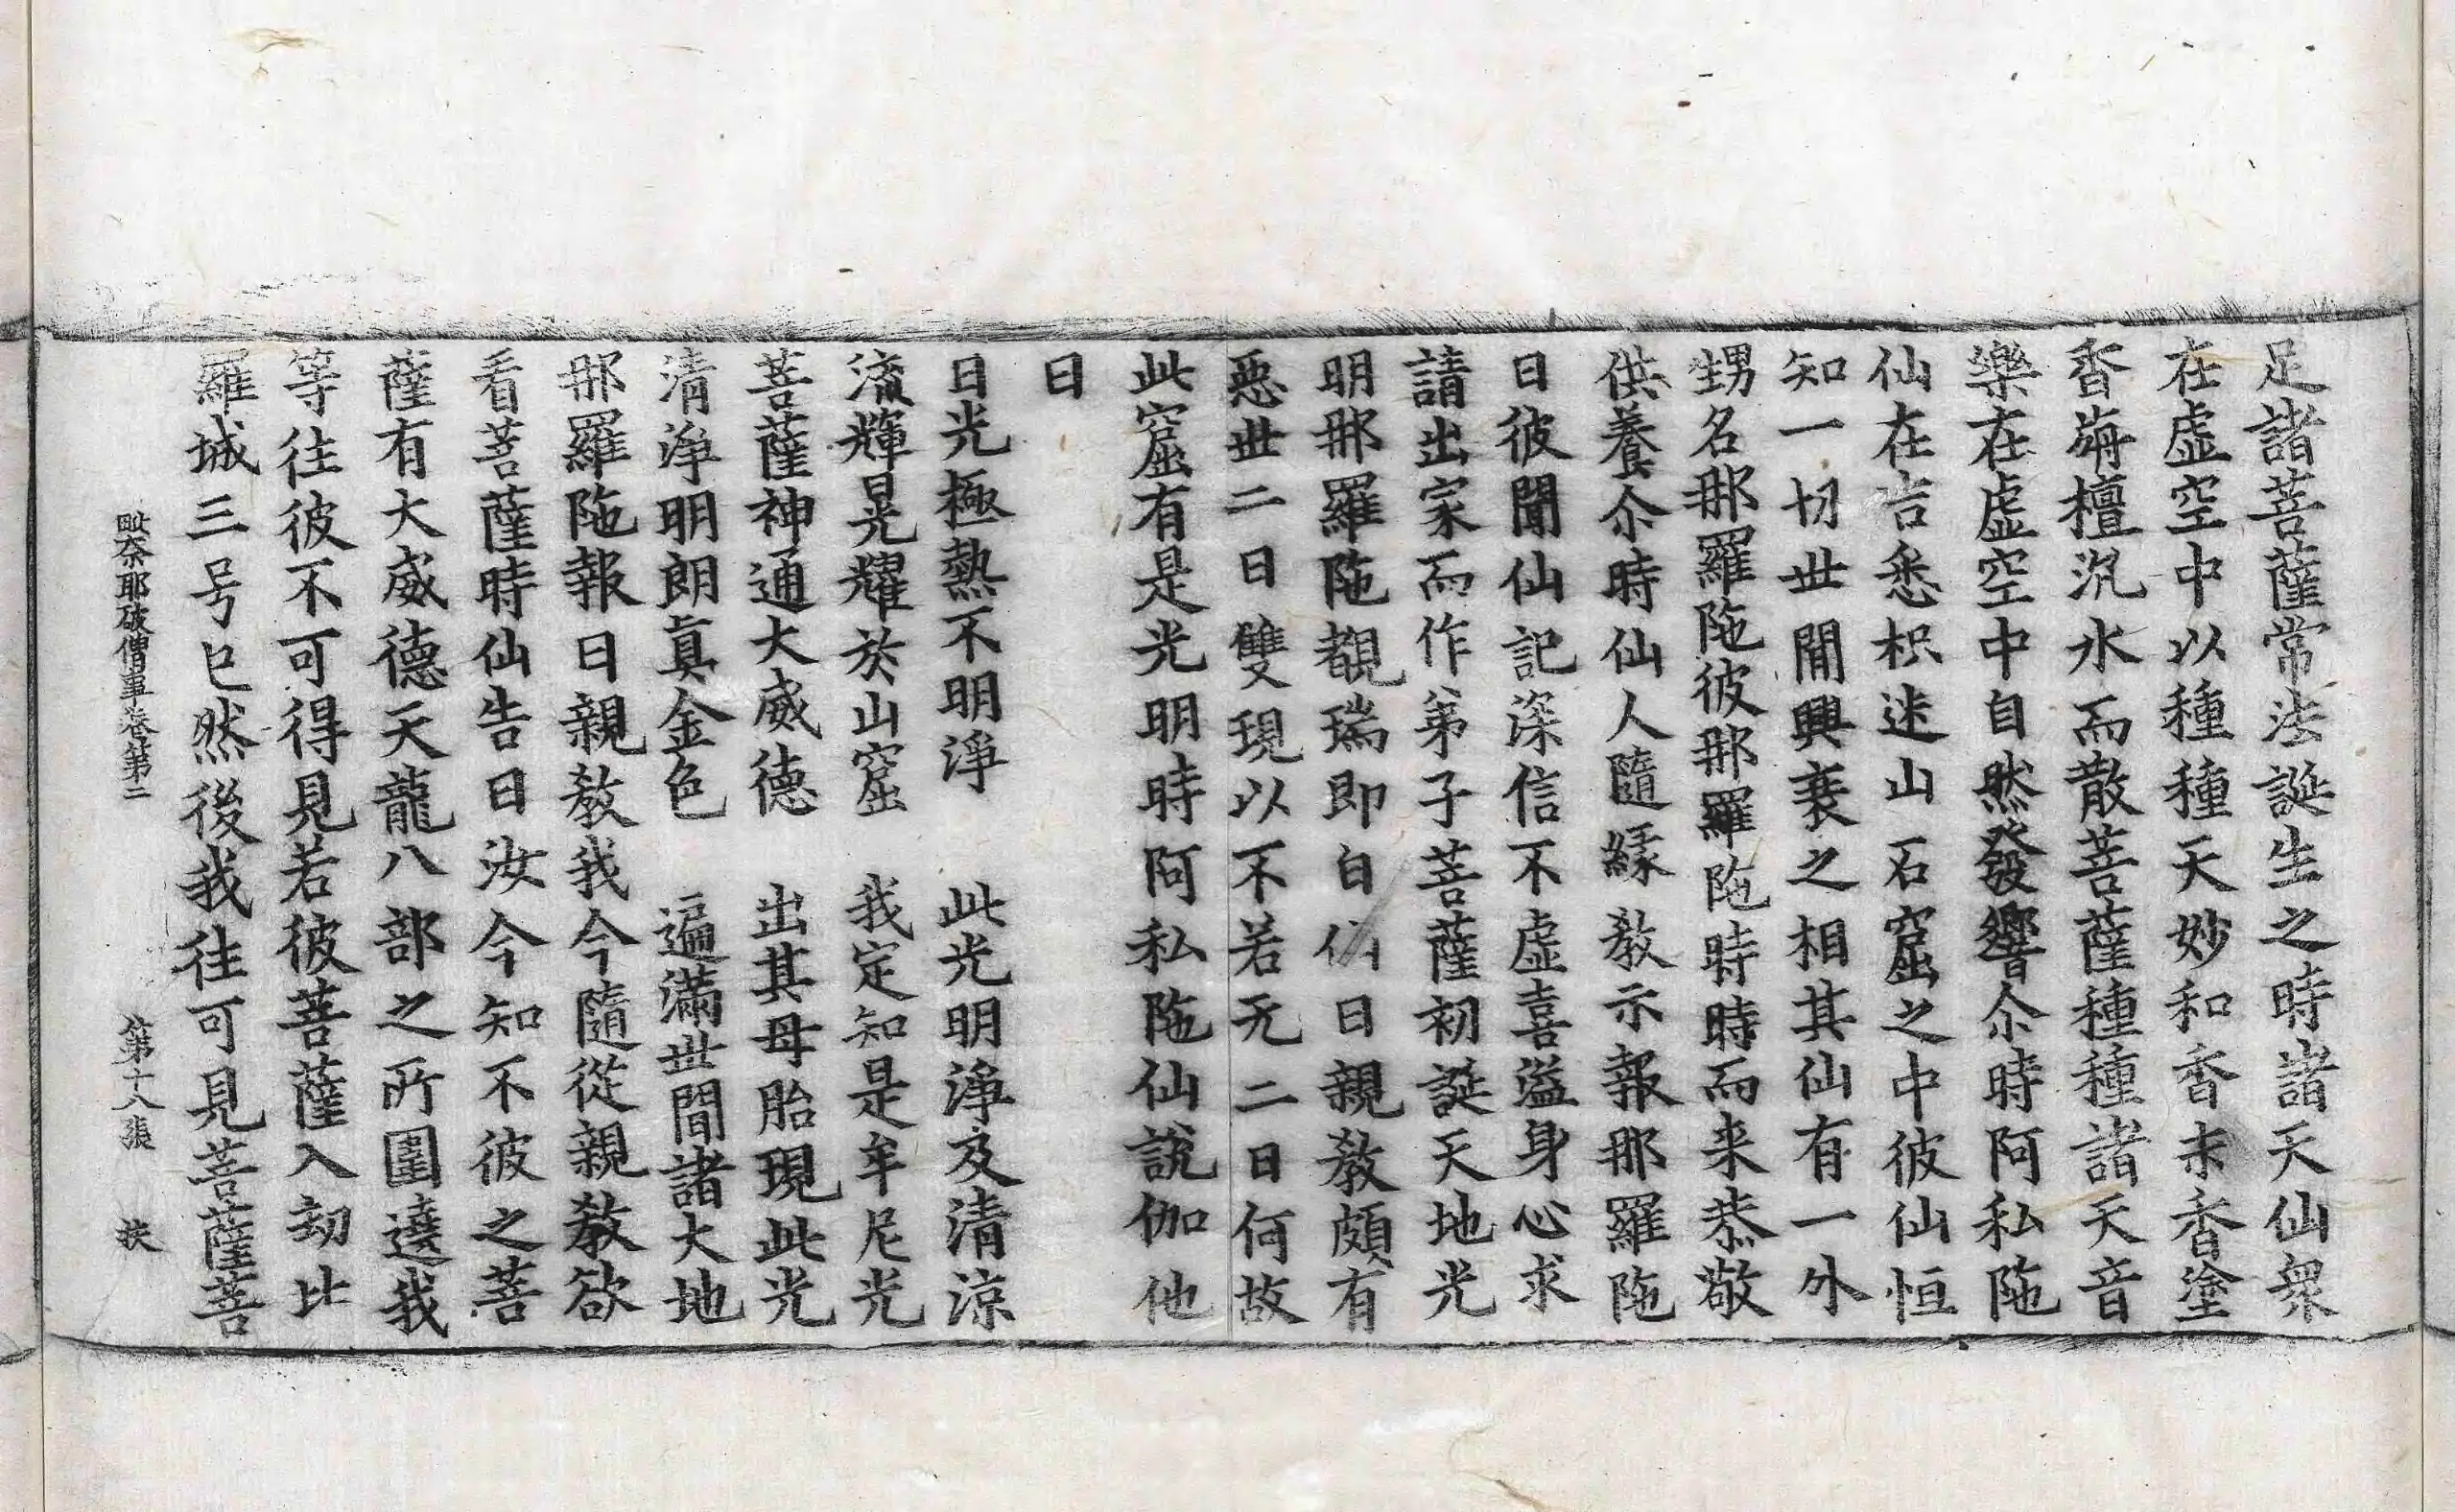 足諸菩薩常法誕生之時諸天仙衆
在虛空中以種種天妙和香末香塗
香旃檀沉水而散菩薩種種諸天音
樂在虛空中自然發響尒時阿私陁
仙在吉悉枳迷山石窟之中彼仙恒
知一切世間興衰之相其仙有一外
甥名那羅陁彼那羅陁時時而来恭敬
供養尒時仙人隨緣教示報那羅陁
日彼聞仙記深信不虛喜溢身心求
請出家而作弟子菩薩初誕天地光
明那羅陁覩瑞即白仙日親教頗有
惡世二日雙現以不若无二日何故
此窟有是光明時阿私陁仙說伽他
日
日光極熱不明淨　此光明淨及清涼
流輝晃耀於山窟　我定知是牟尼光
菩薩神通大威德　出其母胎現此光
清淨明朗真金色　遍滿世間諸大地
那羅陁報日親教我今隨從親教欲
看菩薩時仙告日汝今知不彼之菩
薩有大威德天龍八部之所圍遶我
等往彼不可得見若彼菩薩入劫比
羅城三号已然後我往可見菩薩菩
毗奈耶破僧事卷第二　第十八張　挾